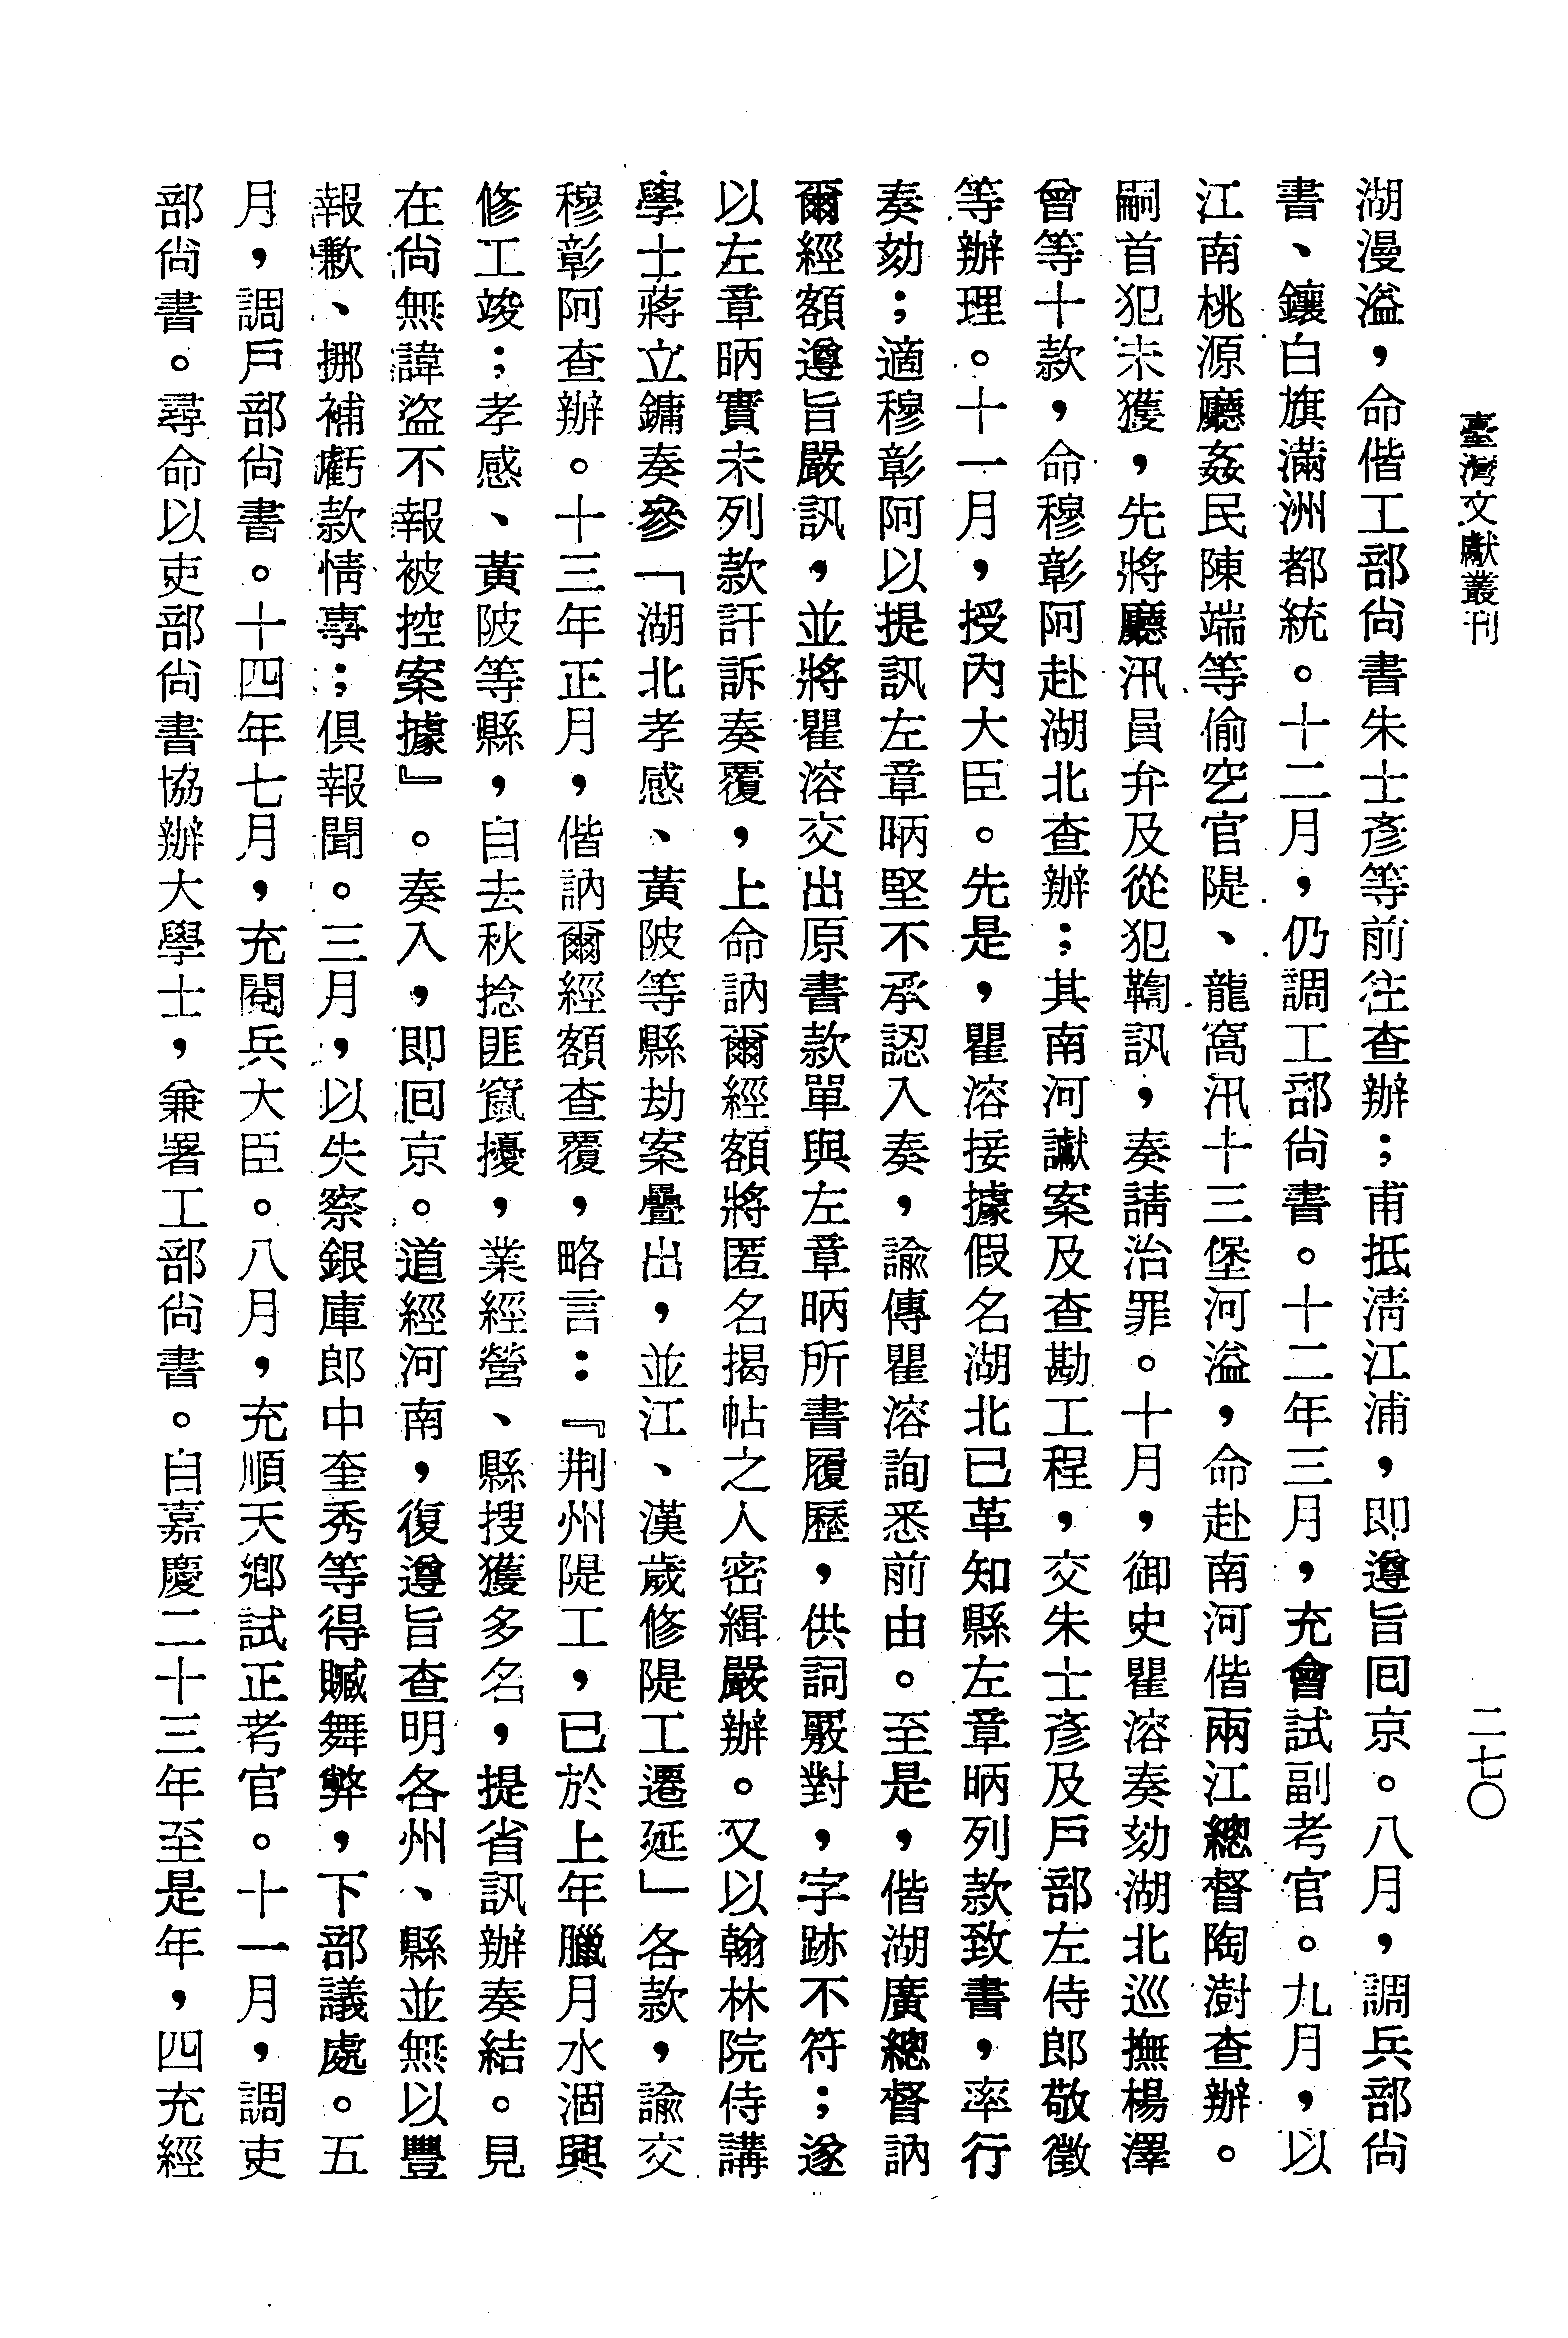 臺灣文獻叢刊
二七〇
湖漫溢，命偕工部尙書朱士彥等前往查辦；甫抵淸江浦，卽遵旨回京。八月，調兵部尙
書、鑲白旗滿洲都統。十二月，仍調工部尙書。十二年三月，充會試副考官。九月，以
江南桃源廳姦民陳端等偷空官隄、龍窩汛十三堡河溢，命赴南河偕兩江總督陶澍查辦。
嗣首犯未獲，先將廳汛員弁及從犯鞫訊，奏請治罪。十月，御史瞿溶奏劾湖北巡撫楊澤
曾等十款，命穆彰阿赴湖北查辦；其南河讞案及查勘工程，交朱士彥及戶部左侍郎敬徵
等辦理。十一月，授內大臣。先是，瞿溶接據假名湖北已革知縣左章昞列款致書，率行
奏劾；適穆彰阿以提訊左章昞堅不承認入奏，諭傳瞿溶詢悉前由。至是，偕湖廣總督訥
爾經額遵旨嚴訊，並將瞿溶交出原書款單與左章昞所書履歷，供詞覈對，字跡不符；遂
以左章昞實未列款訐訴奏覆，上命訥爾經額將匿名揭帖之人密緝嚴辦。又以翰林院侍講
學士蔣立鏞奏參「湖北孝感、黃陂等縣劫案疊出，並江、漢歲修隄工遷延」各款，諭交
穆彰阿查辦。十三年正月，偕訥爾經額查覆，略言：『荆州隄工，已於上年臘月水涸興
修工竣；孝感、黃陂等縣，自去秋捻匪竄擾，業經營、縣搜獲多名，提省訊辦奏結。見
在尙無諱盜不報被控案據』。奏入，卽回京。道經河南，復遵旨查明各州、縣並無以豐
報歉、挪補虧款情事；俱報聞。三月，以失察銀庫郎中奎秀等得贓舞弊，下部議處。五
月，調戶部尙書。十四年七月，充閱兵大臣。八月，充順天鄉試正考官。十一月，調吏
部尙書。尋命以吏部尙書協辦大學士，兼署工部尙書。自嘉慶二十三年至是年，四充經